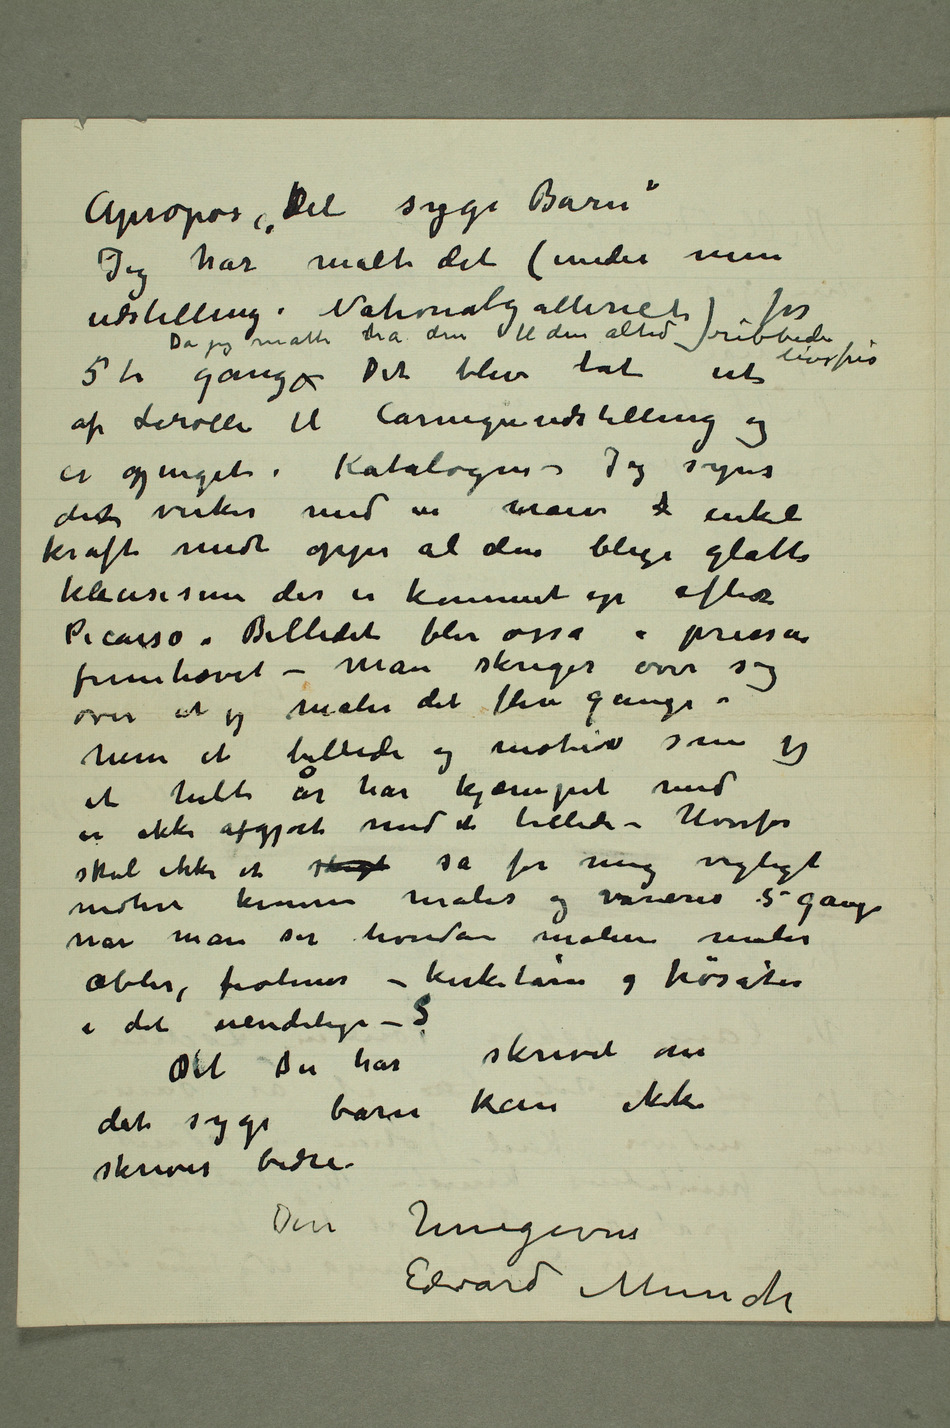 Apropos „Det syge Barn“
Jeg har malt det (under min
udstilling i Nationalgalleriet) for
Da jeg måtte ha den til den altid ribbede
livsfris
5te gang Det blev tat ut
af Lerolle til Carnegieudstilling og
er gjenget i Katalogen – Jeg synes
det virker med en naiv enkel
kraft midt oppe al den blege glatte
klassisism der er kommet op efter
Picasso. Billedet blir også i pressen
fremhævet – Man skriger over sig
over at jeg maler det flere gange –
men et billede og motiv som jeg
et helt år har kjæmpet med
er ikke afgjort med et billede – Hvorfor
skal ikke et så for mig vigtigt
motiv kunne males og varieres 5 gange
når man ser hvordan malere maler
æbler, fioliner – kirketårn og høsåter
i det uendelige –?
Det Du har skrivet om
det syge barn kan ikke
skrives bedre
Din hengivne
Edvard Munch